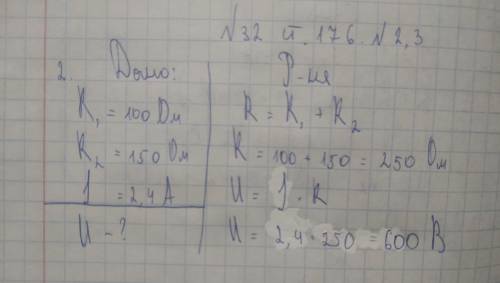 №32 п. 176. №2,3
2. Дано:
R₁ = 100 Ом
R₂ = 150 Ом
J = 2,4 А
U - ?
Р-ня
R = R₁ + R₂
R = 100 + 150 = 250 Ом
U = J · R
U = 2,4 · 250 = 600 В